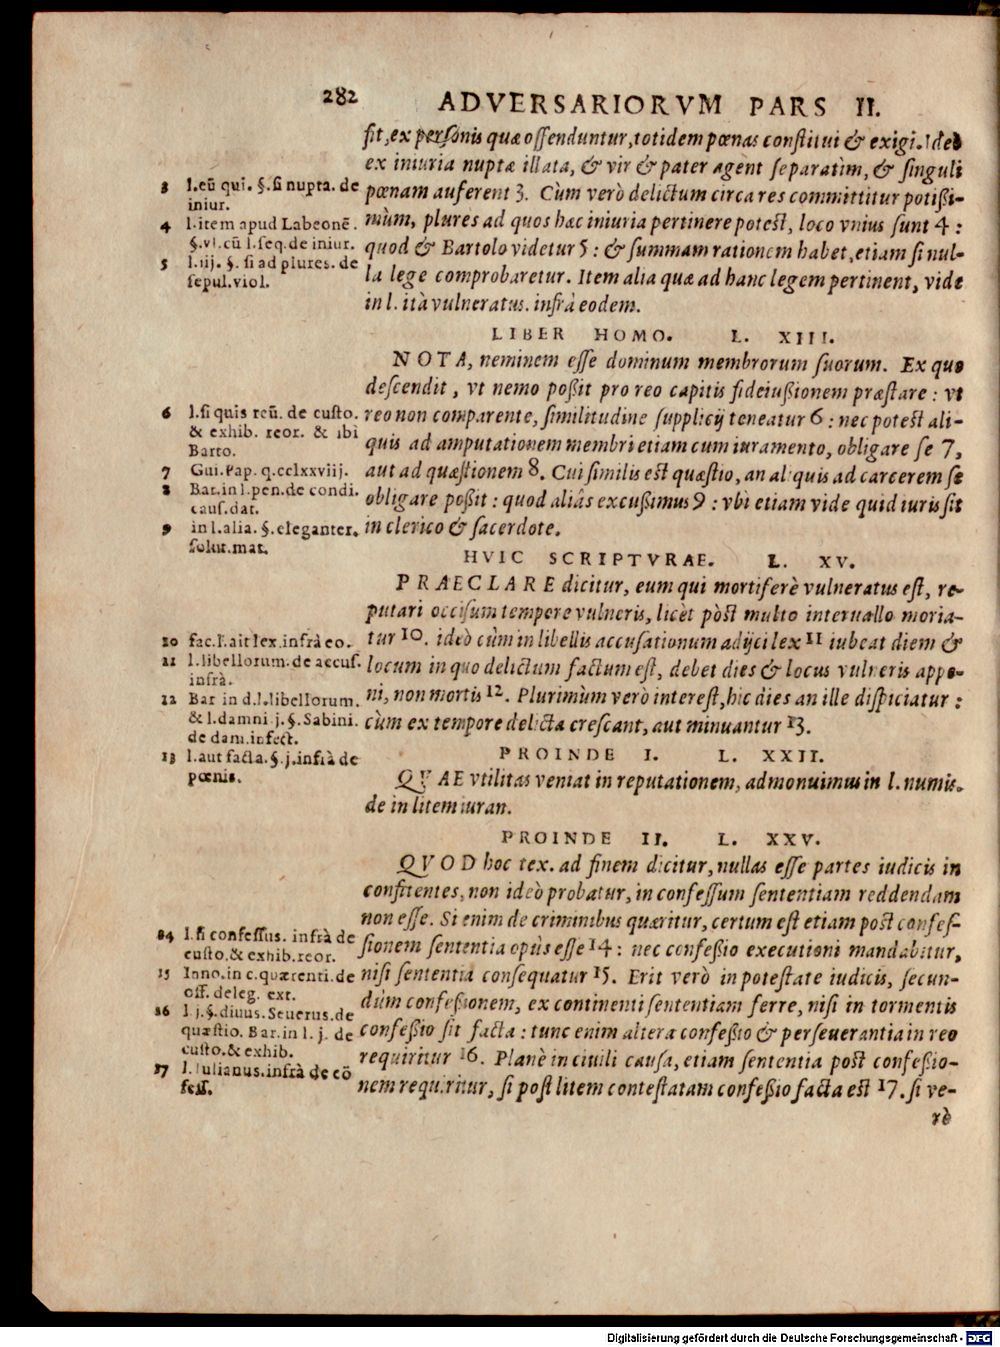 282
ADVERSARIORVM PARS II.
sit, ex personis quæ offenduntur, totidem pœnas constitui & exigi. Ideò
ex iniuria nuptæ illata, & vir & pater agent separatìm, & singuli
pœnam auferent 3. Cùm verò delictum circa res committitur potißi-
mùm, plures ad quos hæc iniuria pertinere potest, loco vnius sunt 4 :
quod & Bartolo videtur 5 : & summam rationem habet, etiam si nul-
la lege comprobaretur. Item alia quæ ad hanc legem pertinent, vide
in l. ità vulneratus. infrà eodem.
3 l. eū qui. §. si nupta. de
iniur.
4 l. item apud Labeonē.
§. vl. cū l. seq. de iniur.
5 l. iij. §. si ad plures. de
sepul. viol.
LIBER HOMO. L. XIII.
NOTA, neminem esse dominum membrorum suorum. Ex quo
descendit, vt nemo poßit pro reo capitis fideiußionem præstare : vt
reo non comparente, similitudine supplicij teneatur 6 : nec potest ali-
quis ad amputationem membri etiam cum iuramento, obligare se 7,
aut ad quæstionem 8. Cui similis est quæstio, an aliquis ad carcerem se
obligare poßit : quod aliâs excußimus 9 : vbi etiam vide quid iuris sit
in clerico & sacerdote.
6 l. si quis reū. de custo.
& exhib. reor. & ibi
Barto.
7 Gui. Pap. q. cclxxviij.
8 Bar. in l. pen. de condi.
caus. dat.
9 in l. alia. §. eleganter.
solut. mat.
HVIC SCRIPTVRAE. L. XV.
PRAECLARE dicitur, eum qui mortiferè vulneratus est, re-
putari occisum tempore vulneris, licèt pòst multo interuallo moria-
tur 10. ideò cùm in libellis accusationum adijci lex 11 iubeat diem &
locum in quo delictum factum est, debet dies & locus vulneris appo-
ni, non mortis 12. Plurimùm verò interest, hic dies an ille dispiciatur :
cùm ex tempore delicta crescant, aut minuantur 13.
10 fac. l. ait lex. infrà eo.
11 l. libellorum. de accus.
infrà.
12 Bar in d. l. libellorum.
& l. damni. j. §. Sabini.
de dam. infect.
13 l. aut facta. §. j. infrà de
pœnis.
PROINDE I. L. XXII.
QVAE vtilitas veniat in reputationem, admonuimus in l. numis.
de in litem iuran.
PROINDE II. L. XXV.
QVOD hoc tex. ad finem dicitur, nullas esse partes iudicis in
confitentes, non ideò probatur, in confessum sententiam reddendam
non esse. Si enim de criminibus quæritur, certum est etiam post confes-
sionem sententia opùs esse 14 : nec confeßio executioni mandabitur,
nisi sententia consequatur 15. Erit verò in potestate iudicis, secun-
dùm confeßionem, ex continenti sententiam ferre, nisi in tormentis
confeßio sit facta : tunc enim altera confeßio & perseuerantia in reo
requiritur 16. Planè in ciuili causa, etiam sententia post confeßio-
nem requiritur, si post litem contestatam confeßio facta est 17. si ve-
rò
14 l. si confessus. infrà de
custo. & exhib. reor.
15 Inno. in c. quærenti. de
off. deleg. ext.
16 l. j. §. diuus. Seuerus. de
quæstio. Bar. in l. j. de
custo. & exhib.
17 l. Iulianus. infrà de cō
fess.
Digitalisierung gefördert durch die Deutsche Forschungsgemeinschaft - DFG